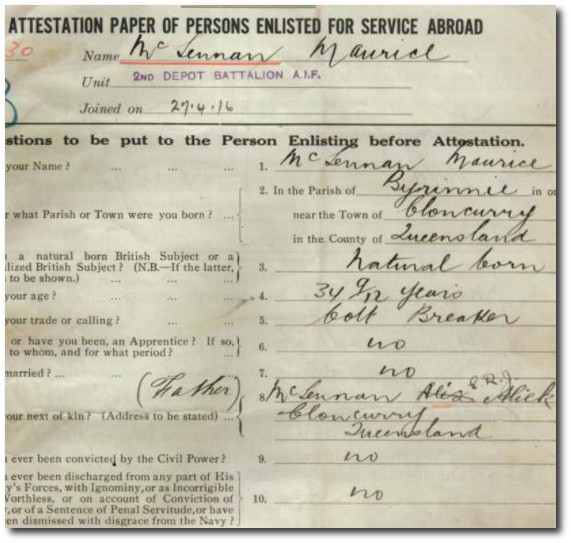 ATTESTATION PAPER OF PERSONS ENLISTED FOR SERVICE ABROAD
30
Name McLennan Maurice
Unit 2ND DEPOT BATTALION A.I.F.
Joined on 27.4.16
stions to be put to the Person Enlisting before Attestation.
your Name? ... ... ... 1. McLennan Maurice
2. In the Parish of Byrinnie in or
r what Parish or Town were you born? ... near the Town of Cloncurry
in the County of Queensland
a natural born British Subject or a
lized British Subject? (N.B.—If the latter,
to be shown.) ... ... 3. Natural born
your age? ... ... ... 4. 34 9/12 years
your trade or calling? ... ... 5. Colt Breaker
or have you been, an Apprentice? If so,
to whom, and for what period? ... 6. no
married? ... ... ... 7. no
(Father) 8. McLennan Alick
our next of kin? (Address to be stated) ... Cloncurry
Queensland
ever been convicted by the Civil Power? 9. no
ever been discharged from any part of His
y's Forces, with Ignominy, or as Incorrigible
Worthless, or on account of Conviction of
y, or of a Sentence of Penal Servitude, or have
en dismissed with disgrace from the Navy? 10. no